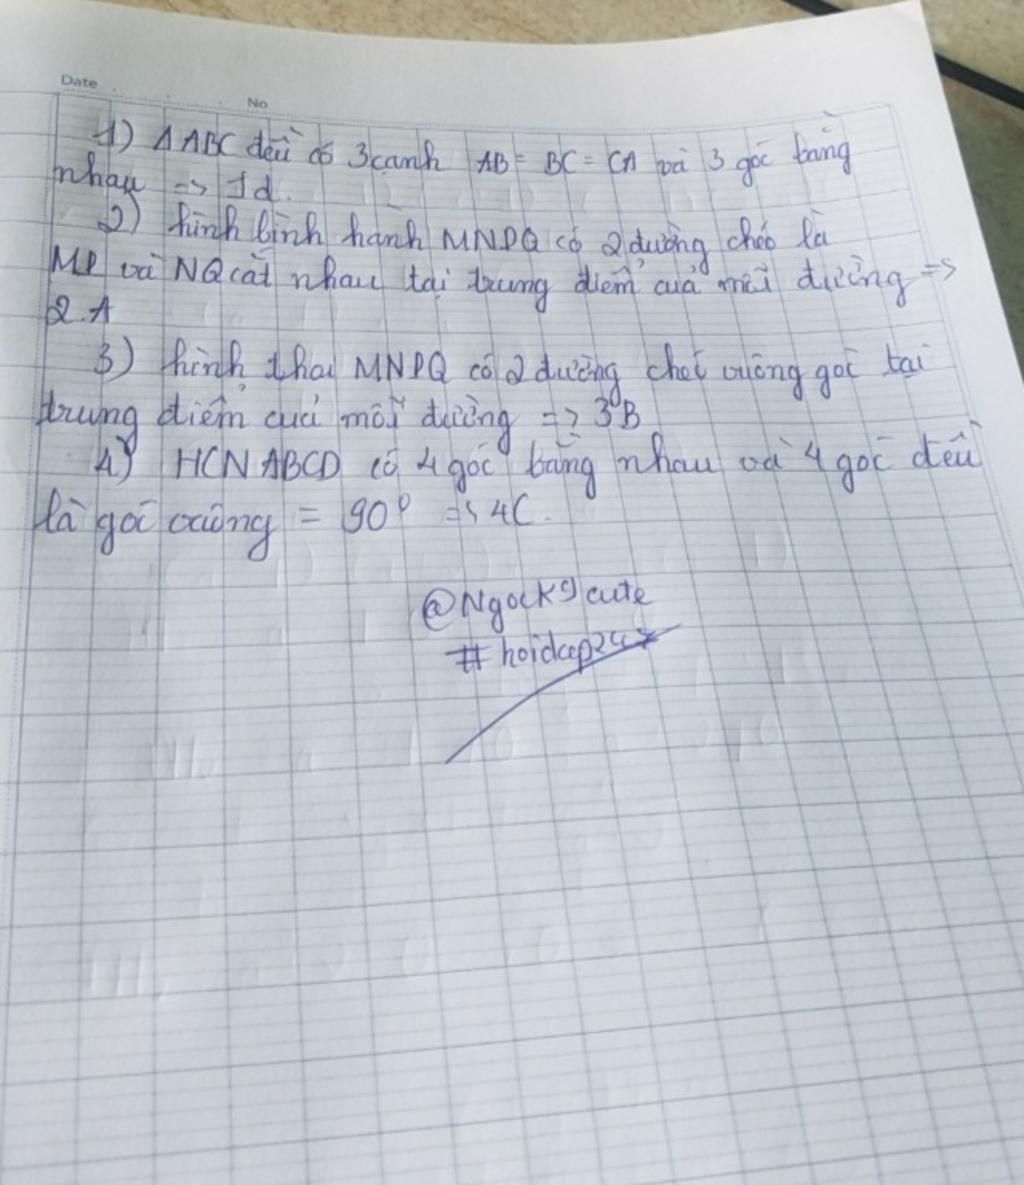 Date
No
1) ΔABC đều có 3 cạnh AB = BC = CA và 3 góc bằng
nhau => 1d.
2) hình bình hành MNPQ có 2 đường chéo là
MP và NQ cắt nhau tại trung điểm của mỗi đường =>
2.A
3) hình thoi MNPQ có 2 đường chéo vuông góc tại
trung điểm của mỗi đường => 3B
4) HCN ABCD có 4 góc bằng nhau và 4 góc đều
là góc vuông = 90° => 4C.
@Ngock9cute
#hoidap247